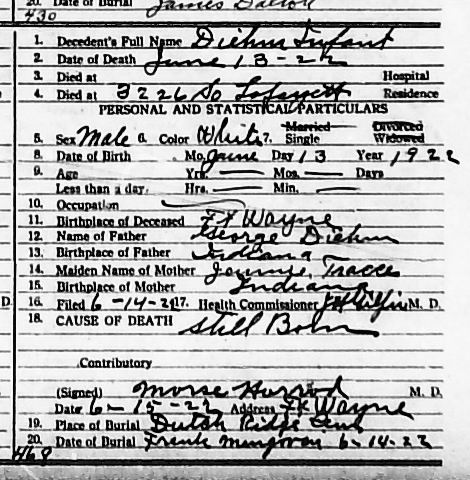 20. Date of Burial James Dalton
430
1. Decedent's Full Name Diehm Infant
2. Date of Death June 13-22
3. Died at Hospital
4. Died at 3226 So Lafayett Residence
PERSONAL AND STATISTICAL PARTICULARS
5. Sex Male 6. Color White 7. Married Single Divorced Widowed
8. Date of Birth Mo. June Day 13 Year 1922
9. Age Yrs. Mos. Days
Less than a day. Hrs. Min.
10. Occupation
11. Birthplace of Deceased Ft Wayne
12. Name of Father George Diehm
13. Birthplace of Father Indiana
14. Maiden Name of Mother Jennie Tracee
15. Birthplace of Mother Indiana
D. 16. Filed 6-14-22 17. Health Commissioner M. D.
18. CAUSE OF DEATH Still Born
Contributory
(Signed) Morse Harrod M. D.
Date 6-15-22 Address Ft Wayne
19. Place of Burial Dutch Ridge Cem
20. Date of Burial Frank 6-14-22
D.
468